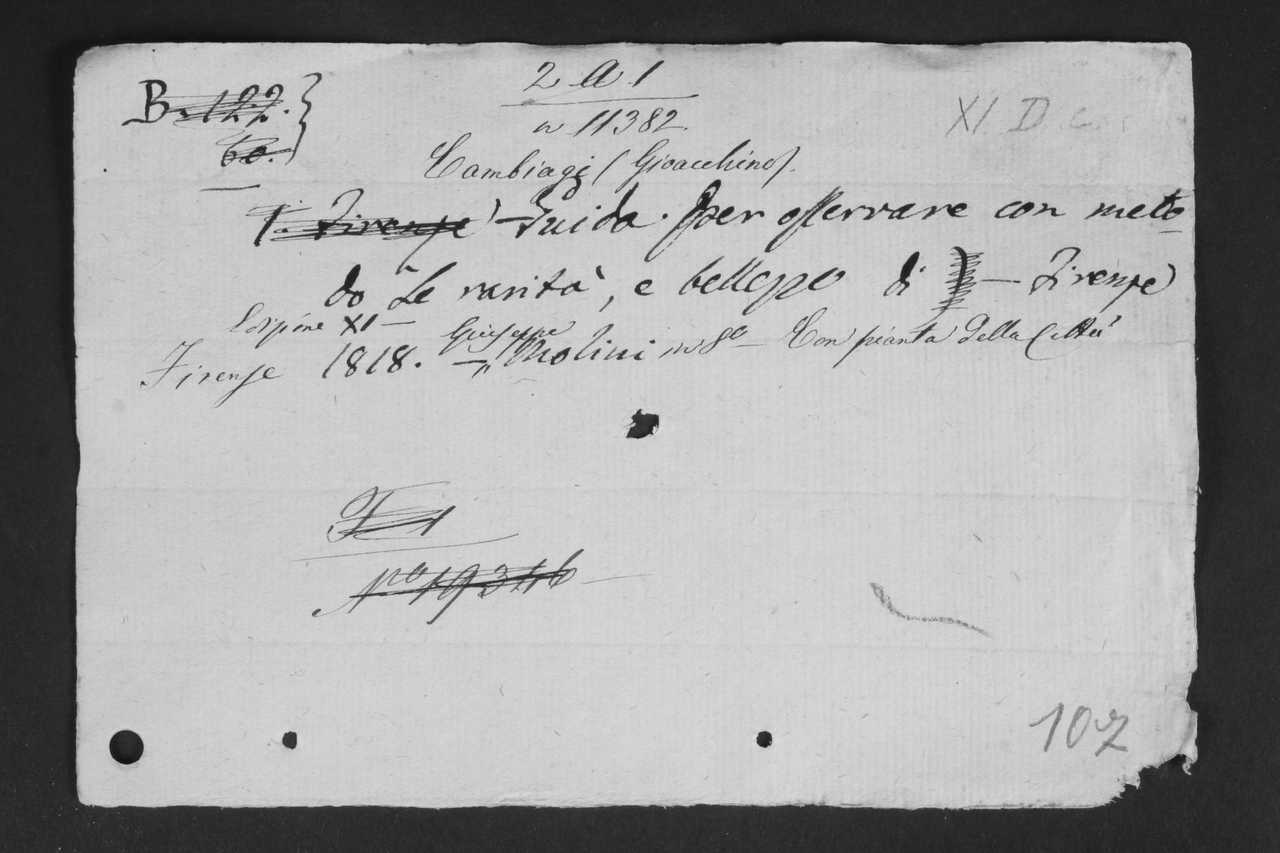 2 A 1
B. 122.
n 11382
XI. D. c.
60.
Cambiagi (Gioacchino).
F. Firenze Guida per osservare con meto
do Le rarità, e bellezze di — Firenze
Edizione XI — Giuseppe
Firenze 1818. — Molini in 8º — Con pianta della Città
F 1
Nº 19346
107